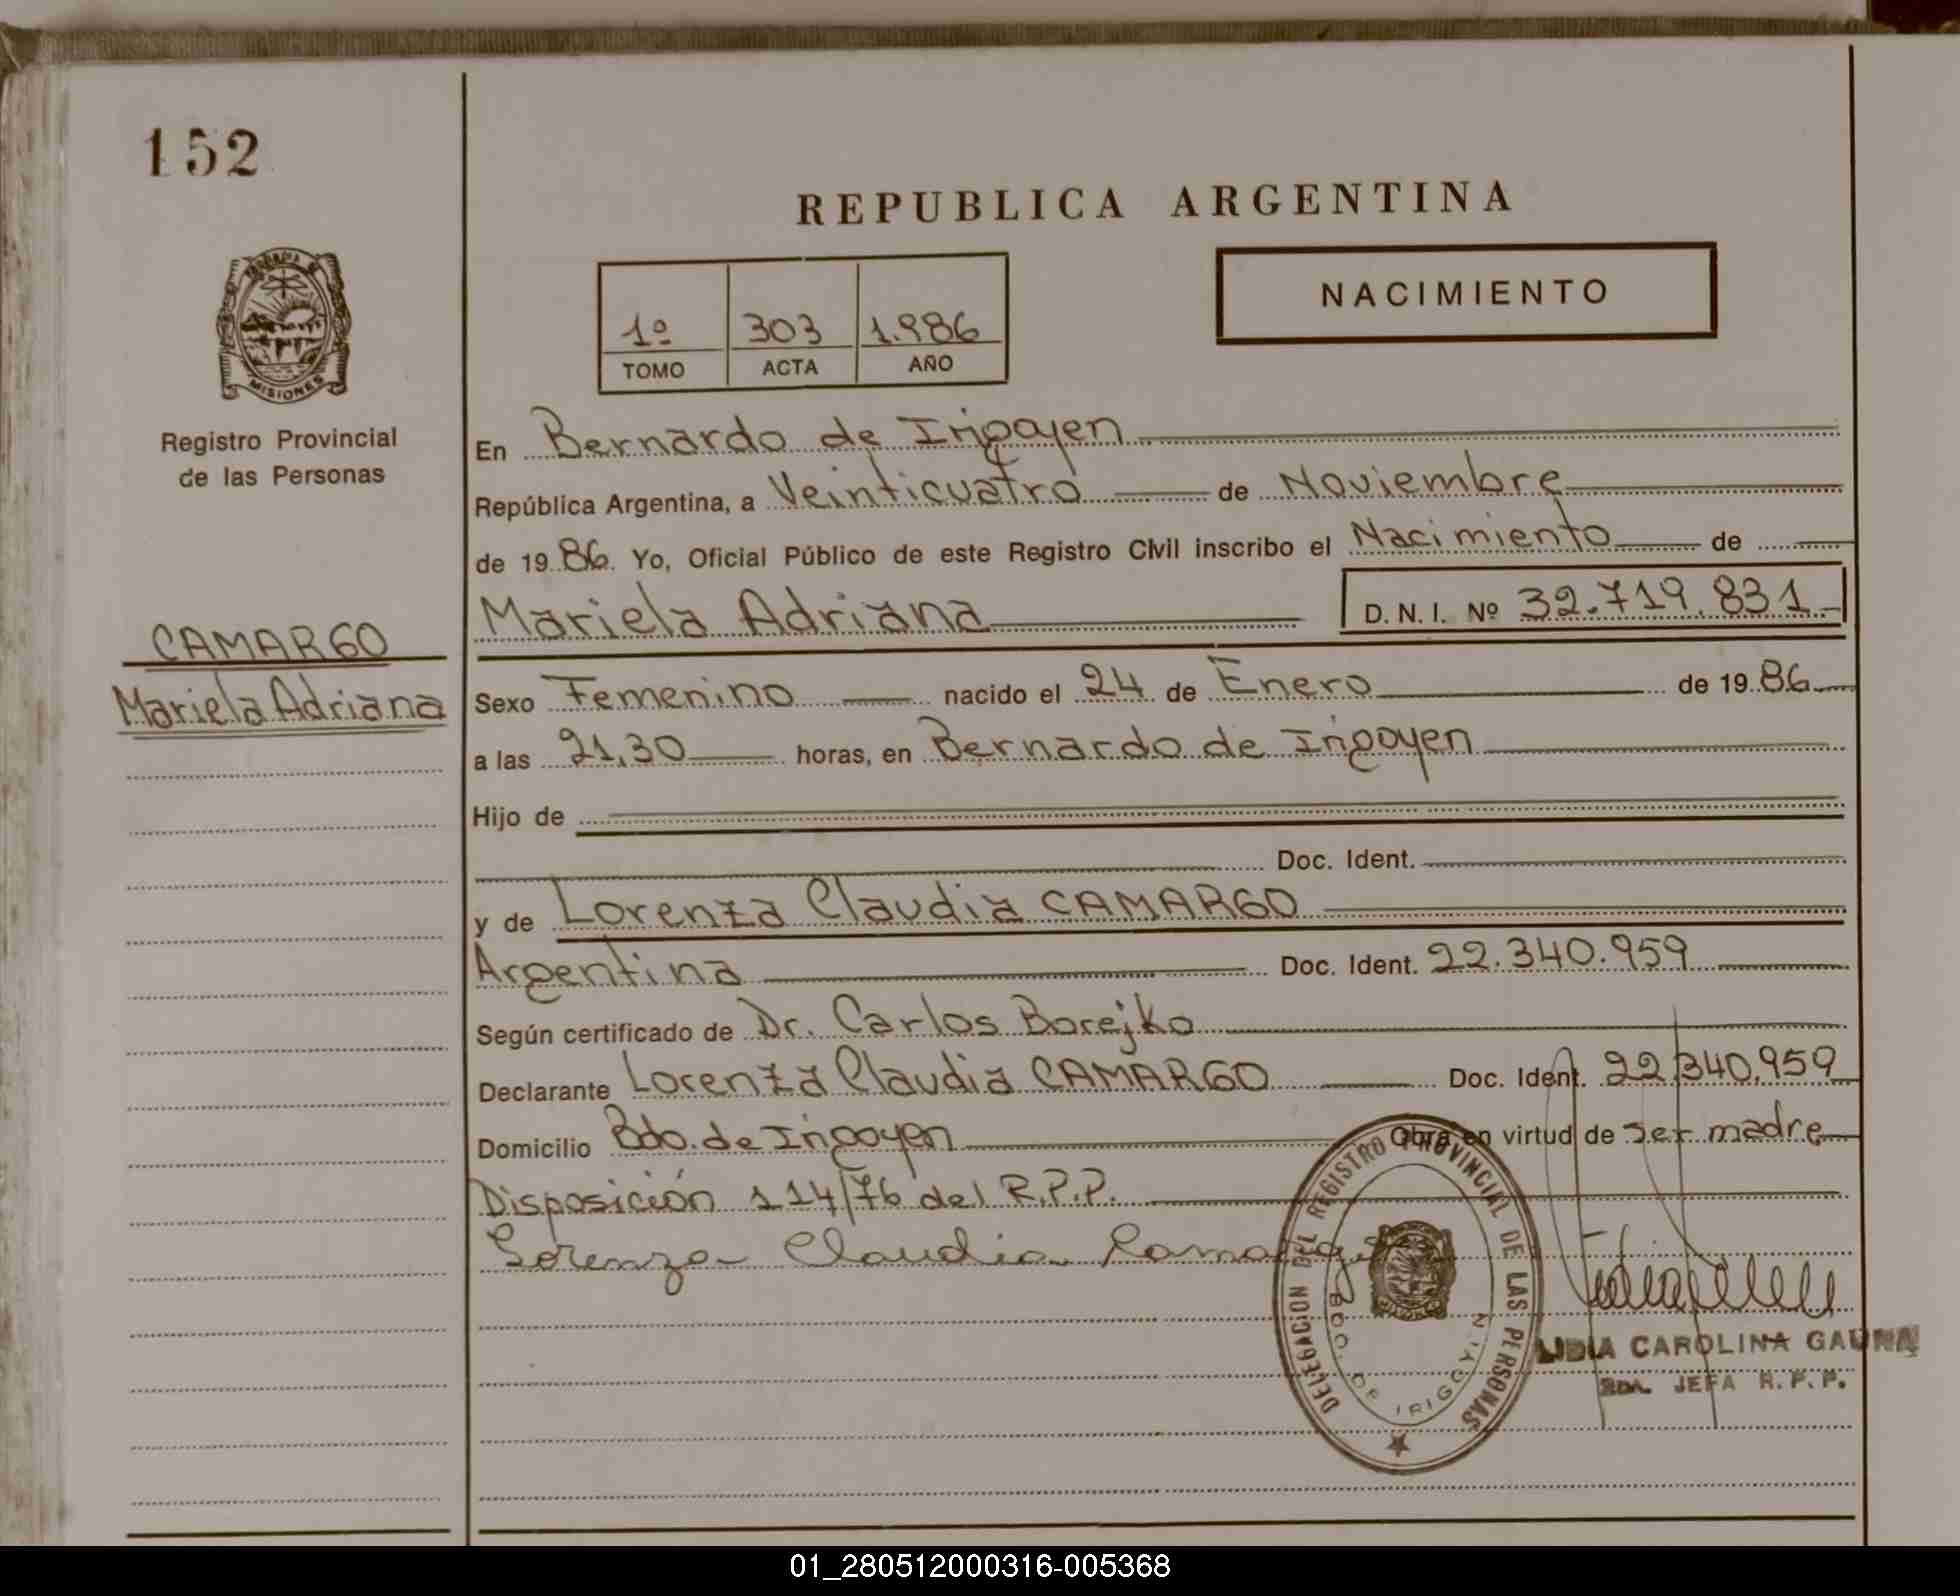 152
REPUBLICA ARGENTINA
NACIMIENTO
1º 303 1.986
TOMO ACTA AÑO
MISIONES
Registro Provincial
de las Personas
CAMARGO
Mariela Adriana
En Bernardo de Irigoyen
República Argentina, a Veinticuatro de Noviembre
de 1986. Yo, Oficial Público de este Registro Civil inscribo el Nacimiento de
Mariela Adriana D.N.I. Nº 32.719.831
Sexo Femenino nacido el 24 de Enero de 1986
a las 21,30 horas, en Bernardo de Irigoyen
Hijo de
Doc. Ident.
y de Lorenza Claudia CAMARGO
Argentina Doc. Ident. 22.340.959
Según certificado de Dr. Carlos Borejko
Declarante Lorenza Claudia CAMARGO Doc. Ident. 22.340.959
Domicilio Bdo. de Irigoyen Obra en virtud de ser madre
Disposición 114/76 del R.P.P.
Lorenza Claudia Camargo
DELEGACION DEL REGISTRO PROVINCIAL DE LAS PERSONAS
BDO. DE IRIGOYEN
LIDIA CAROLINA GAUNA
JEFA R.P.P.
01_280512000316-005368